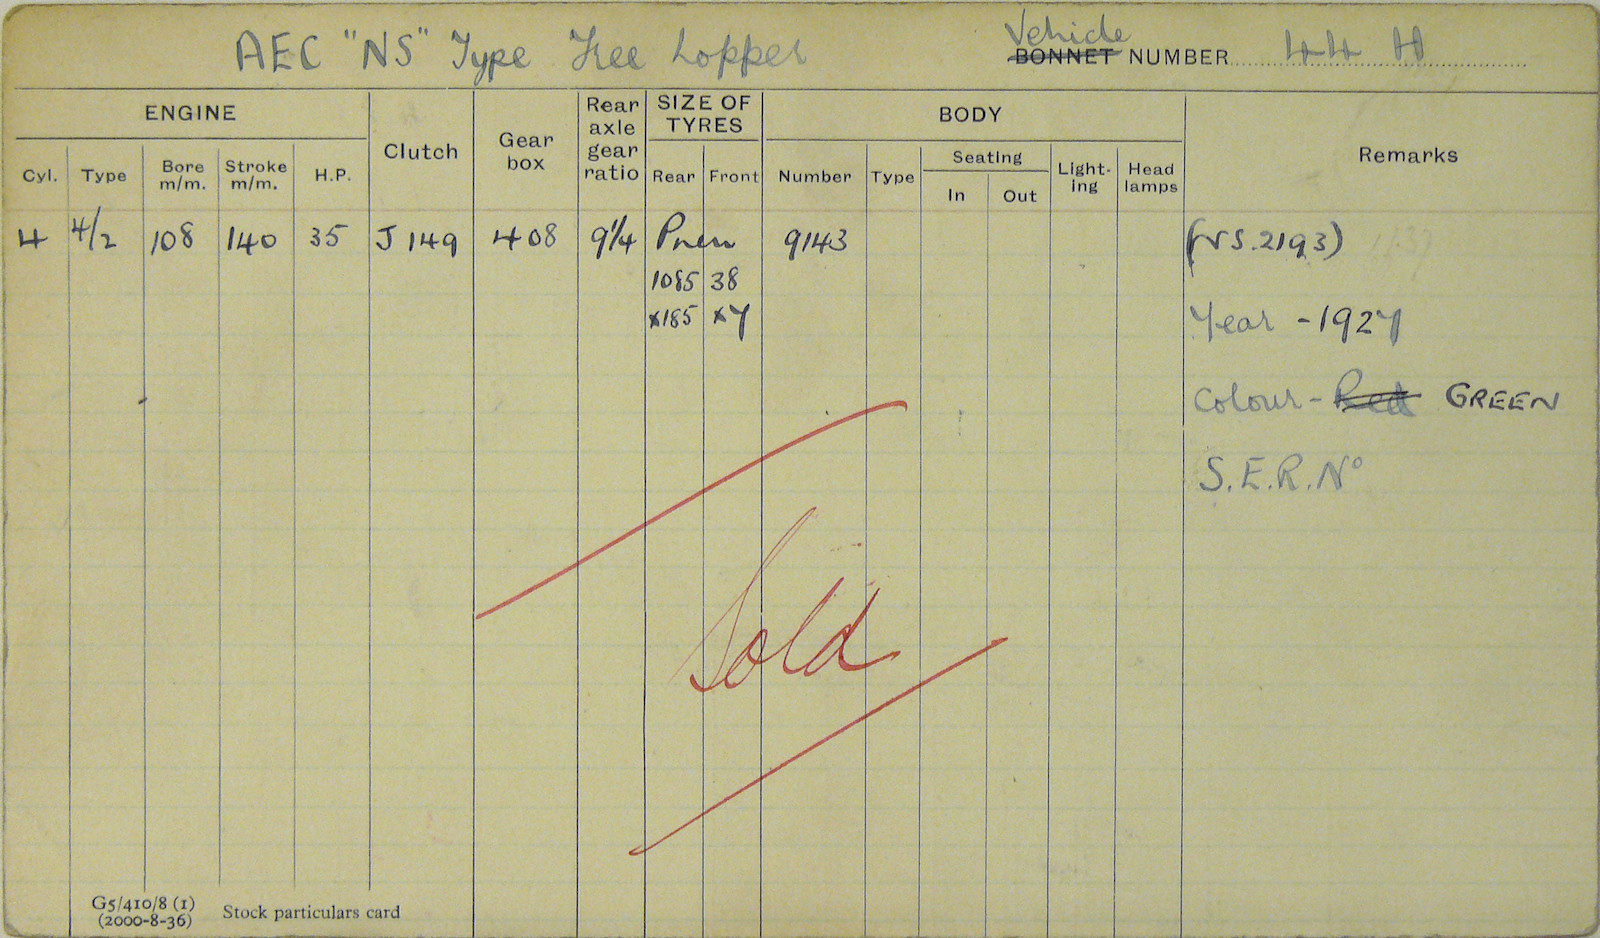 AEC "NS" Type Tree Lopper
Vehicle
BONNET NUMBER 44 H
ENGINE
Clutch
Gear box
Rear axle gear ratio
SIZE OF TYRES
BODY
Remarks
Cyl. Type Bore m/m. Stroke m/m. H.P.
Rear Front
Number Type Seating In Out Light-ing Head lamps
4 4/2 108 140 35 J 149 408 9¼ Pneu 9143 (NS.2193)
1085 38
x185 x7
Year - 1927
Colour - Red GREEN
S.E.R. Nº
Sold
G5/410/8 (1)
(2000-8-36) Stock particulars card